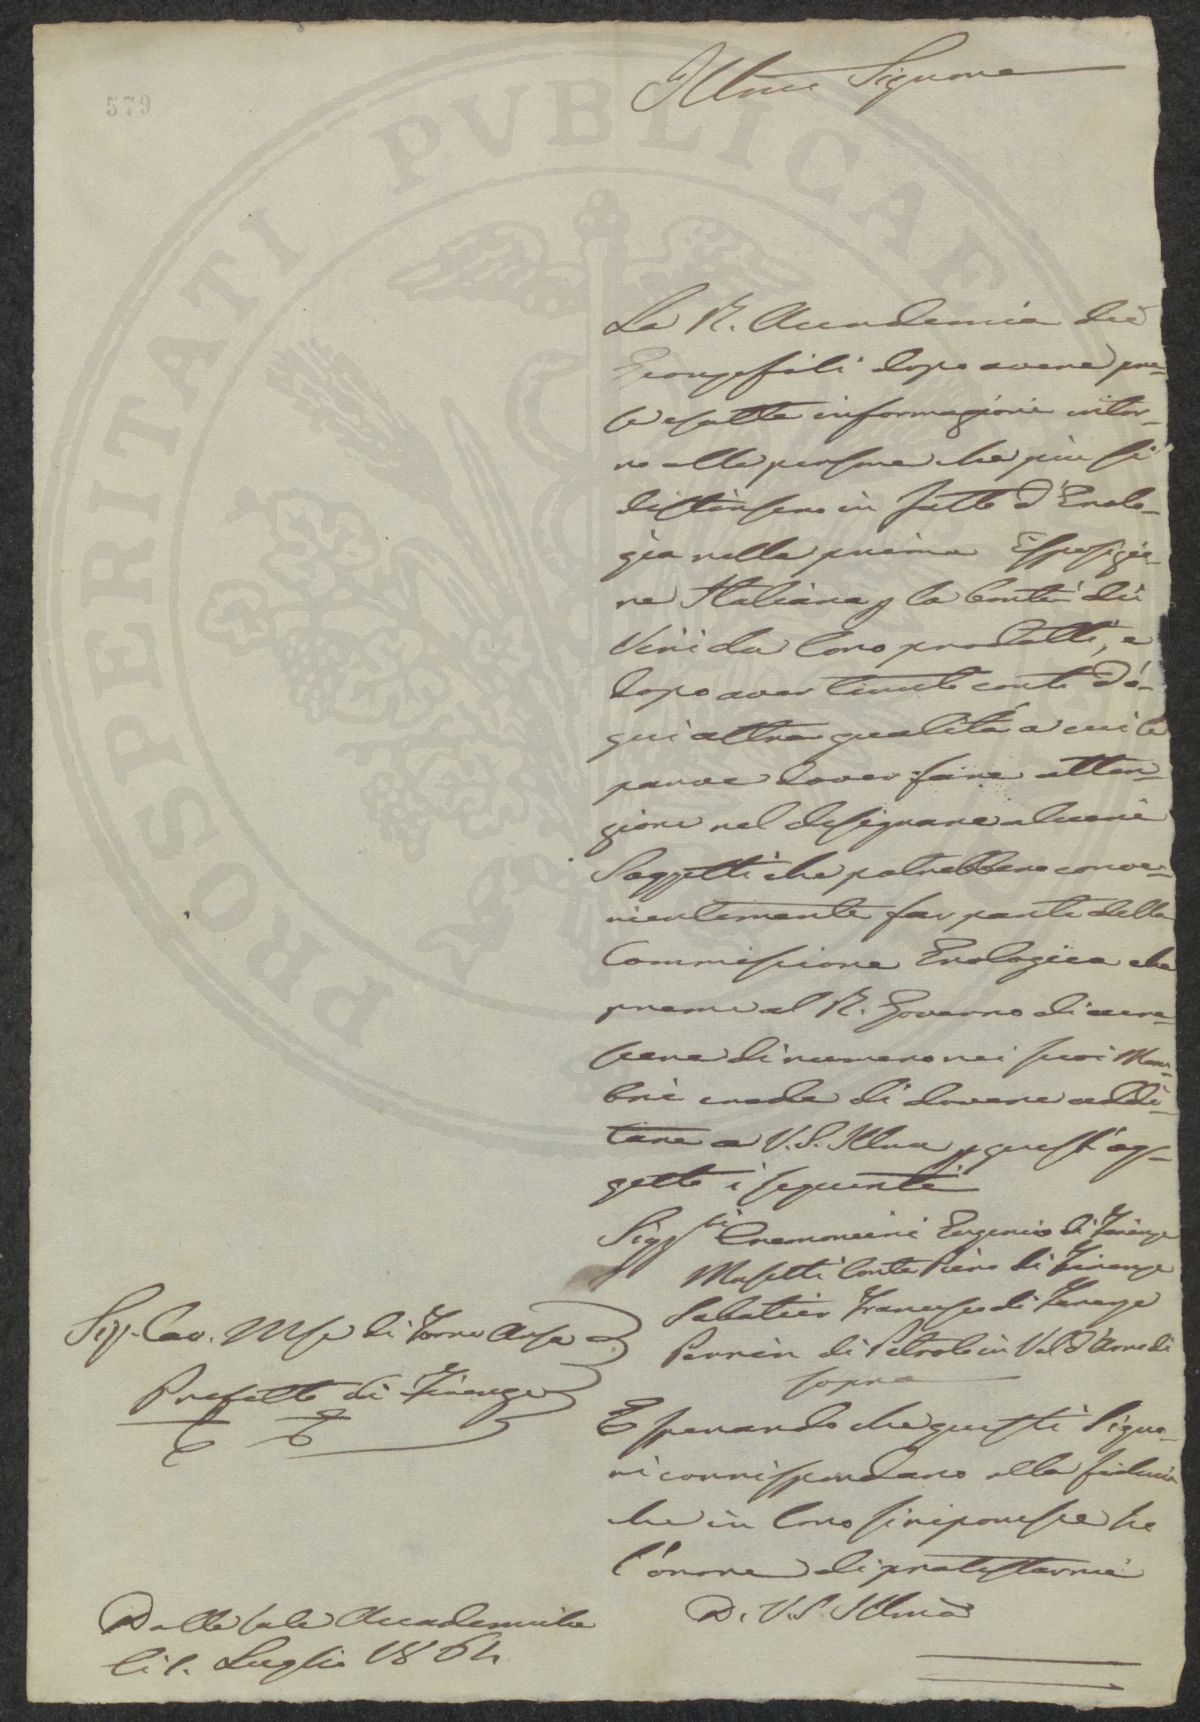 579
Illmo Signore
La R. Accademia dei
Georgofili dopo avere pre-
se esatte informazioni intor-
no alle persone che più si
distinsero in fatto d'Enolo-
gia nella prima Esposizio-
ne Italiana p la bontà dei
Vini da loro prodotti, e
dopo aver tenuto conto d'o-
gni altra qualità a cui le
parve dover fare atten-
zione nel designare alcuni
Soggetti che potrebbero conve-
nientemente far parte della
Commissione Enologica che
preme al R. Governo di accre-
scere di numero nei suoi Mem-
bri crede di dovere addi-
tare a V.S. Illma p quest'og-
getto i seguenti
Sigg.ri Cremoncini Eugenio di Firenze
Masetti Conte Piero di Firenze
Sabatier Francesco di Firenze
Perrin di Petrolo in Val d'Arno di
sopra
E sperando che questi Signo-
ri corrispondano alla fiducia
che in loro si ripone ho
l'onore di protestarmi
D. V. S. Illma
Sig. Cav. Mse di Torre Arsa
Prefetto di Firenze
Dalle sale Accademiche
li 1. Luglio 1864
PROSPERITATI PVBLICAE